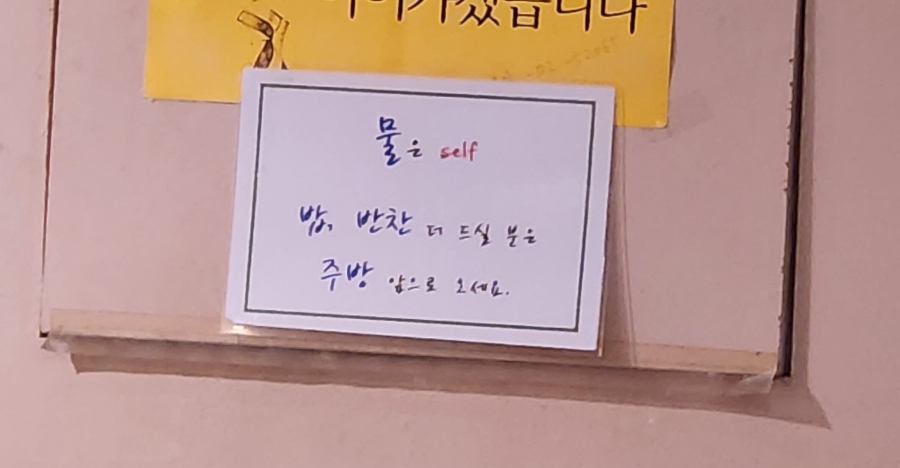 물은 self
밥, 반찬 더 드실 분은
주방 앞으로 오세요.